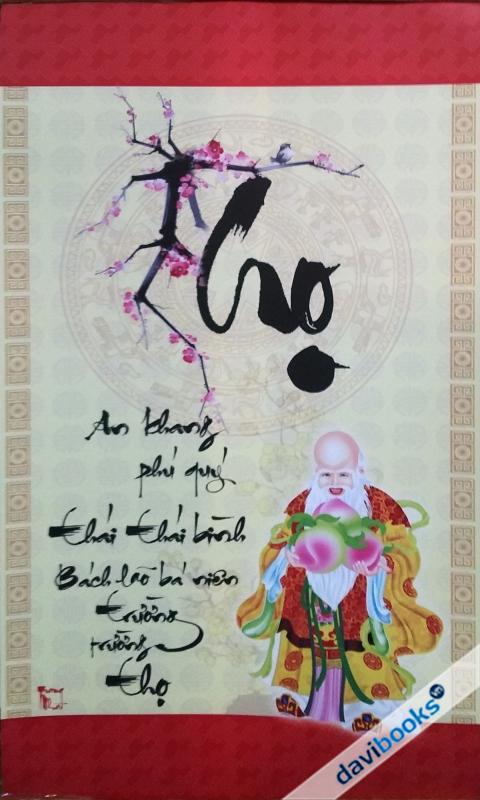 Thọ
An khang
phú quý
thái thái bình
Bách lão bá niên
trường
trường
thọ
davibooks.vn